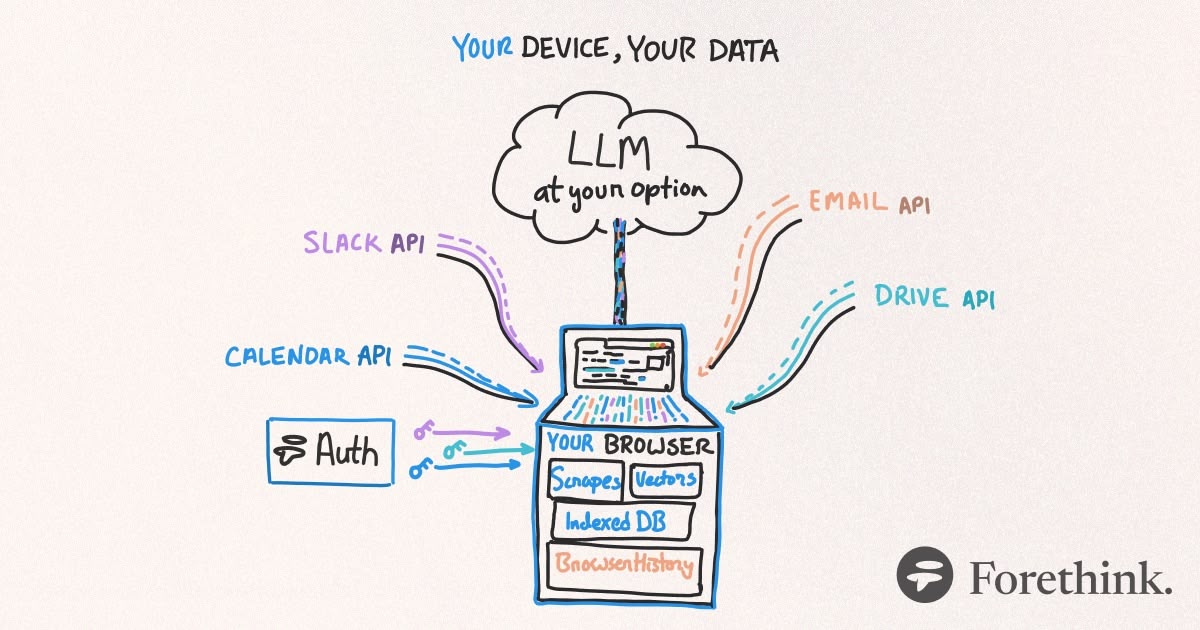 YOUR DEVICE, YOUR DATA
LLM
at your option
EMAIL API
SLACK API
DRIVE API
CALENDAR API
Auth
YOUR BROWSER
Scrapes
Vectors
Indexed DB
BrowserHistory
Forethink.